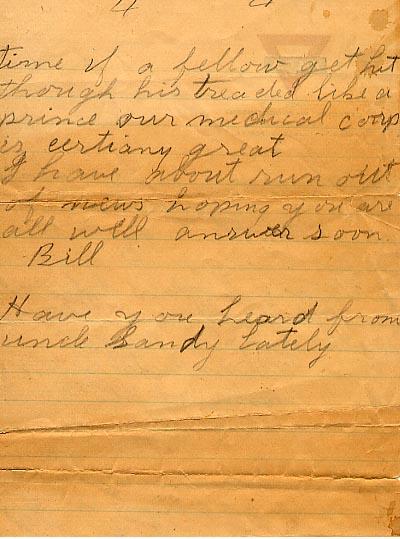 4 4
time if a fellow get hit
though his treaded like a
prince our medical corp
is certiany great
I have about run out
of news hoping you are
all well answer soon
Bill
Have you heard from
uncle Sandy lately